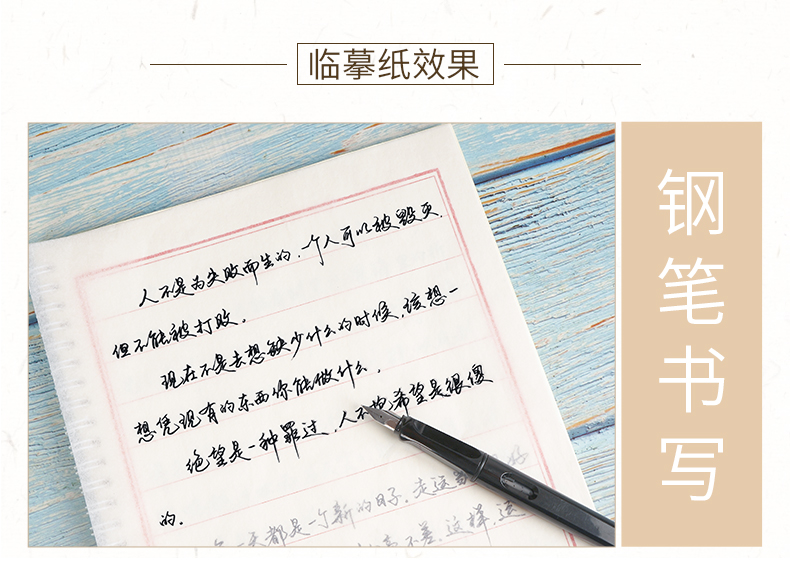 临摹纸效果
人不是为失败而生的，一个人可以被毁灭，
但不能被打败。
现在不是去想缺少什么的时候，该想一
想凭现有的东西你能做什么。
绝望是一种罪过，人不抱希望是很傻
的。
一天都是一个新的日子。走运
不差，这样，运
钢笔书写